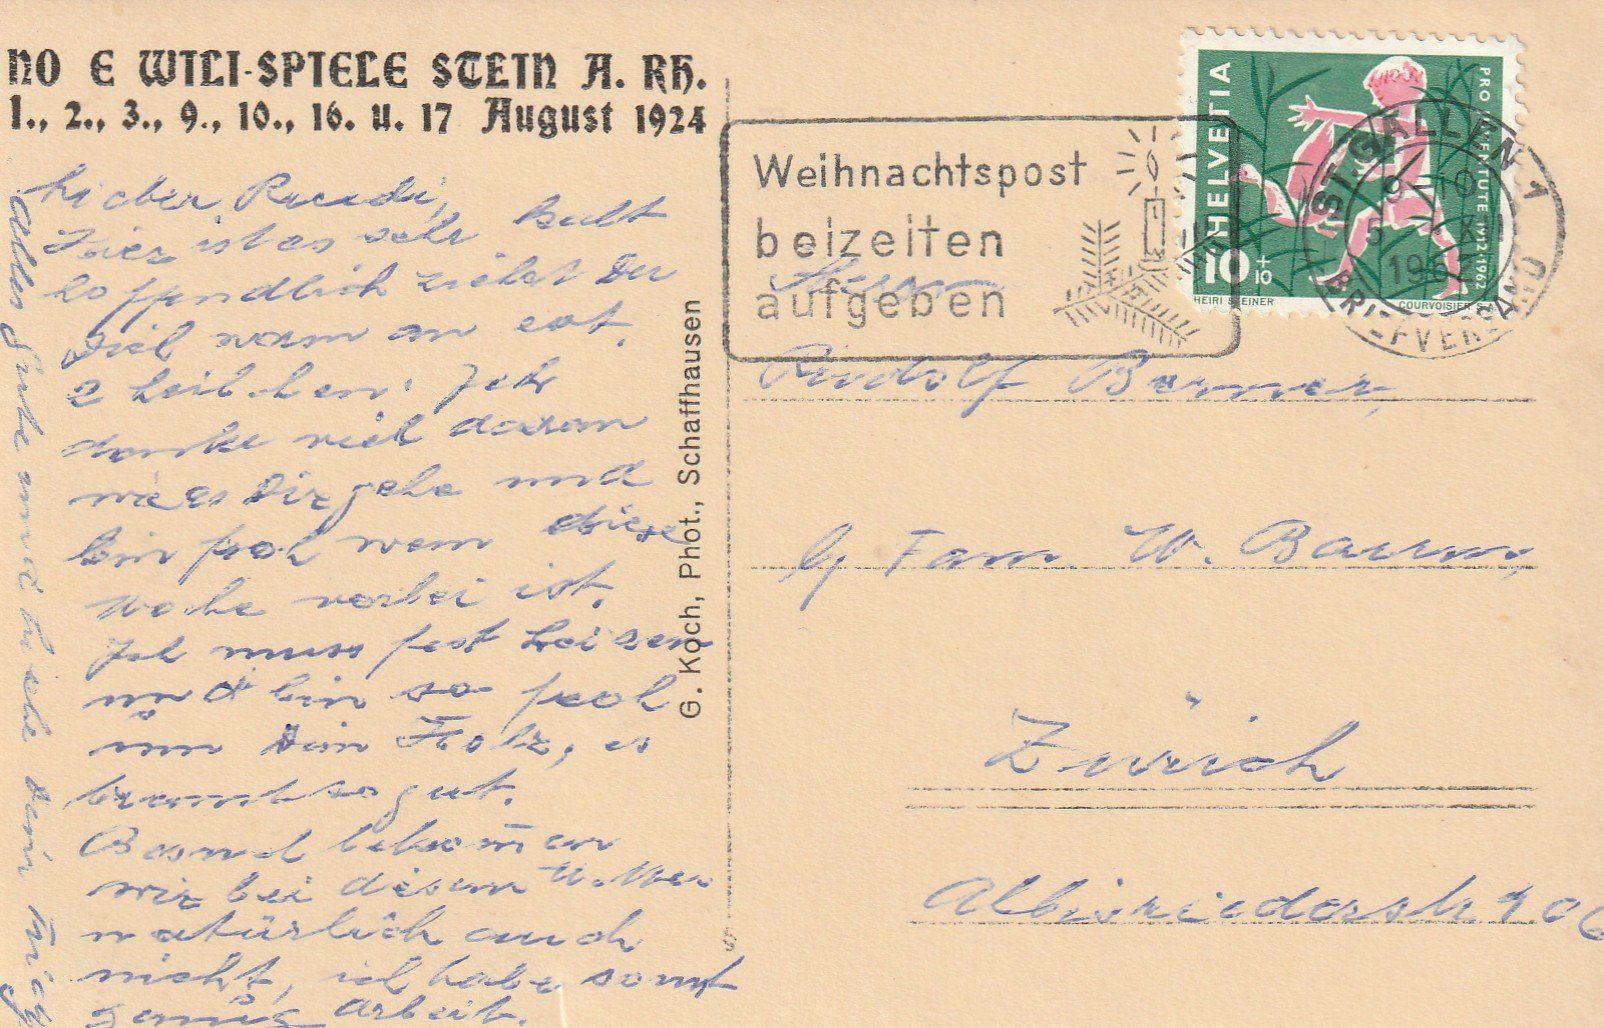 NO E WILI-SPIELE STEIN A. RH.
1., 2., 3., 9., 10., 16. u. 17 August 1924
Lieber Ruedi,
Hier ist es sehr kalt
hoffendlich ziehst Du
Dich warm an
Ich
danke viel daran
wie es Dir gehe und
bin froh wenn diese
Woche vorbei ist.
Ich muss fest heisen
und bin so froh
um Dein Holz, es
brennt so gut.
Besuch bekommen
wir bei diesem Wetter
natürlich auch
nicht, ich habe sonst
genug Arbeit.
Alles Gute und
G. Koch, Phot., Schaffhausen
Weihnachtspost
beizeiten
aufgeben
HELVETIA
PRO JUVENTUTE 1912-1962
10+10
HEIRI STEINER
COURVOISIER S.A.
ST. GALLEN 1
9-10
5. X
1962
BRIEFVERSAND
Herrn
Rudolf
Fam. W.
Zürich
Albisriederstr. 406